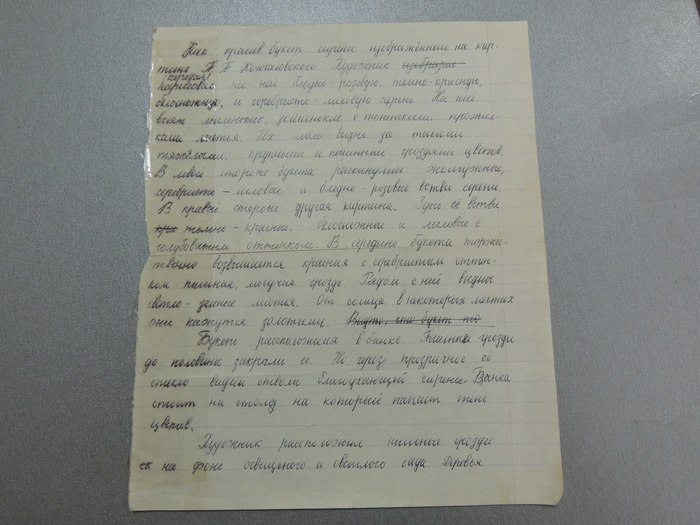 Как красив букет сирени изображённый на кар-
тине П. П. Кончаловского. Художник изобразил
передал
нарисовал на ней бледно-розовую, темно-красную,
белоснежную и серебристо-лиловую сирень. На ней
висят маленькие, зелененькие с тоненькими прожил-
ками листья. Их мало видно за такими
тяжёлыми, крупными и пышными гроздями цветов.
В левой стороне букета раскинулись жемчужные,
серебристо-лиловые и бледно-розовые ветви сирени.
В правой стороне другая картина. Здесь её ветви
тёмно-красные, белоснежные и лиловые с
голубоватым оттенком. В середине букета торже-
ственно возвышается красная с серебристым оттен-
ком пышная, могучая гроздь. Рядом с ней видны
светло-зелёные листья. От солнца в некоторых местах
они кажутся золотыми. Видно, что букет
Букет расположился в банке. Пышные грозди
до половины закрыли ее. Но через прозрачное её
стекло видны стволы благоухающей сирени. Банка
стоит на столе на который падает
цветов.
Художник расположил пышные грозди
на фоне освещеного и светлого сада. Деревья